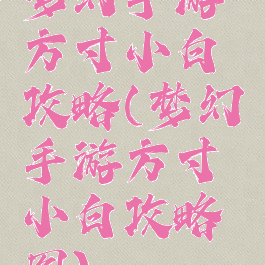 梦幻手游
方寸小白
攻略(梦幻
手游方寸
小白攻略
图)